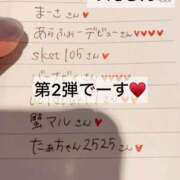 まーさ さん♥
あらふぉーデビューさん♥♥♥♥
skst105さん♥♥
第2弾でーす♥
蟹マルさん♥
たあちゃん2525さん♥